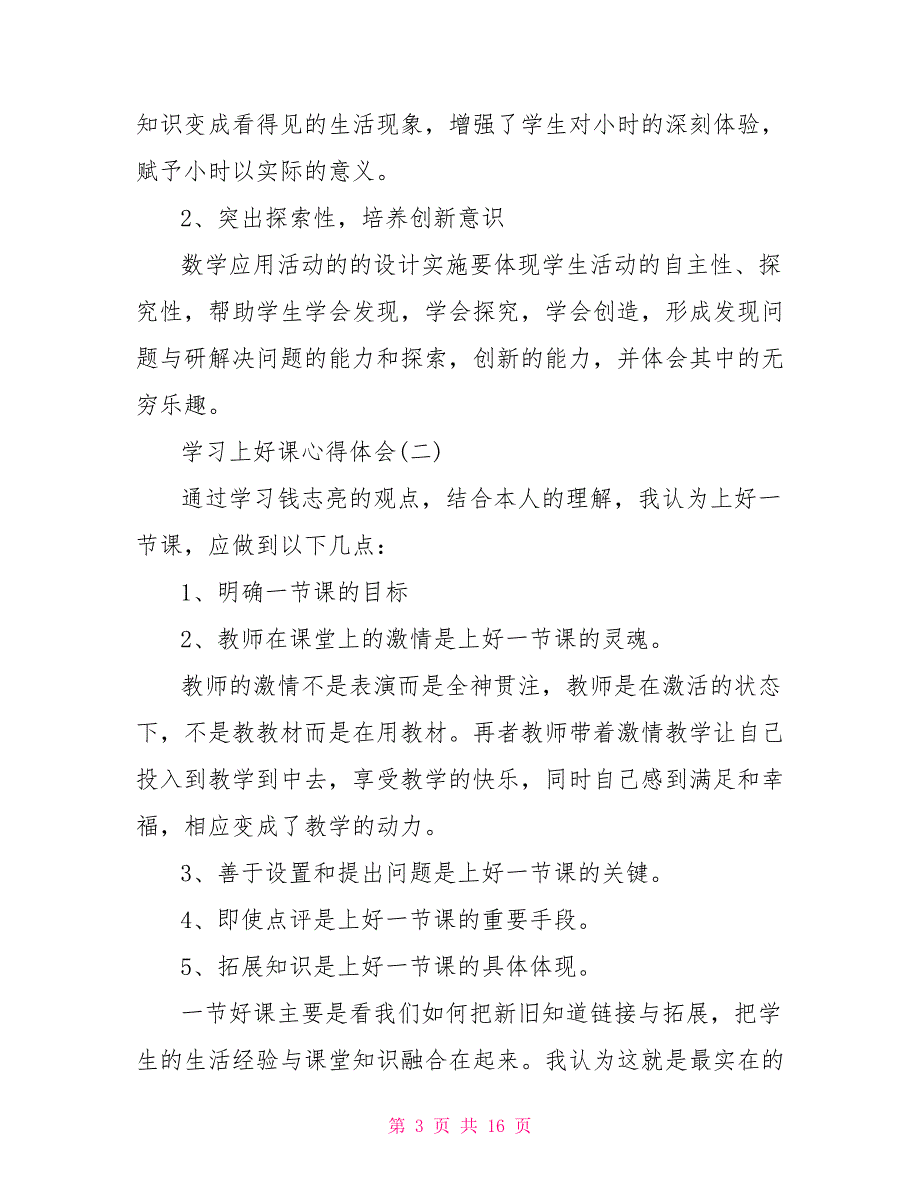 知识变成看得见的生活现象，增强了学生对小时的深刻体验，
赋予小时以实际的意义。
2、突出探索性，培养创新意识
数学应用活动的的设计实施要体现学生活动的自主性、探
究性，帮助学生学会发现，学会探究，学会创造，形成发现问
题与研解决问题的能力和探索，创新的能力，并体会其中的无
穷乐趣。
学习上好课心得体会(二)
通过学习钱志亮的观点，结合本人的理解，我认为上好一
节课，应做到以下几点：
1、明确一节课的目标
2、教师在课堂上的激情是上好一节课的灵魂。
教师的激情不是表演而是全神贯注，教师是在激活的状态
下，不是教教材而是在用教材。再者教师带着激情教学让自己
投入到教学到中去，享受教学的快乐，同时自己感到满足和幸
福，相应变成了教学的动力。
3、善于设置和提出问题是上好一节课的关键。
4、即使点评是上好一节课的重要手段。
5、拓展知识是上好一节课的具体体现。
一节好课主要是看我们如何把新旧知道链接与拓展，把学
生的生活经验与课堂知识融合在起来。我认为这就是最实在的
第 3 页 共 16 页